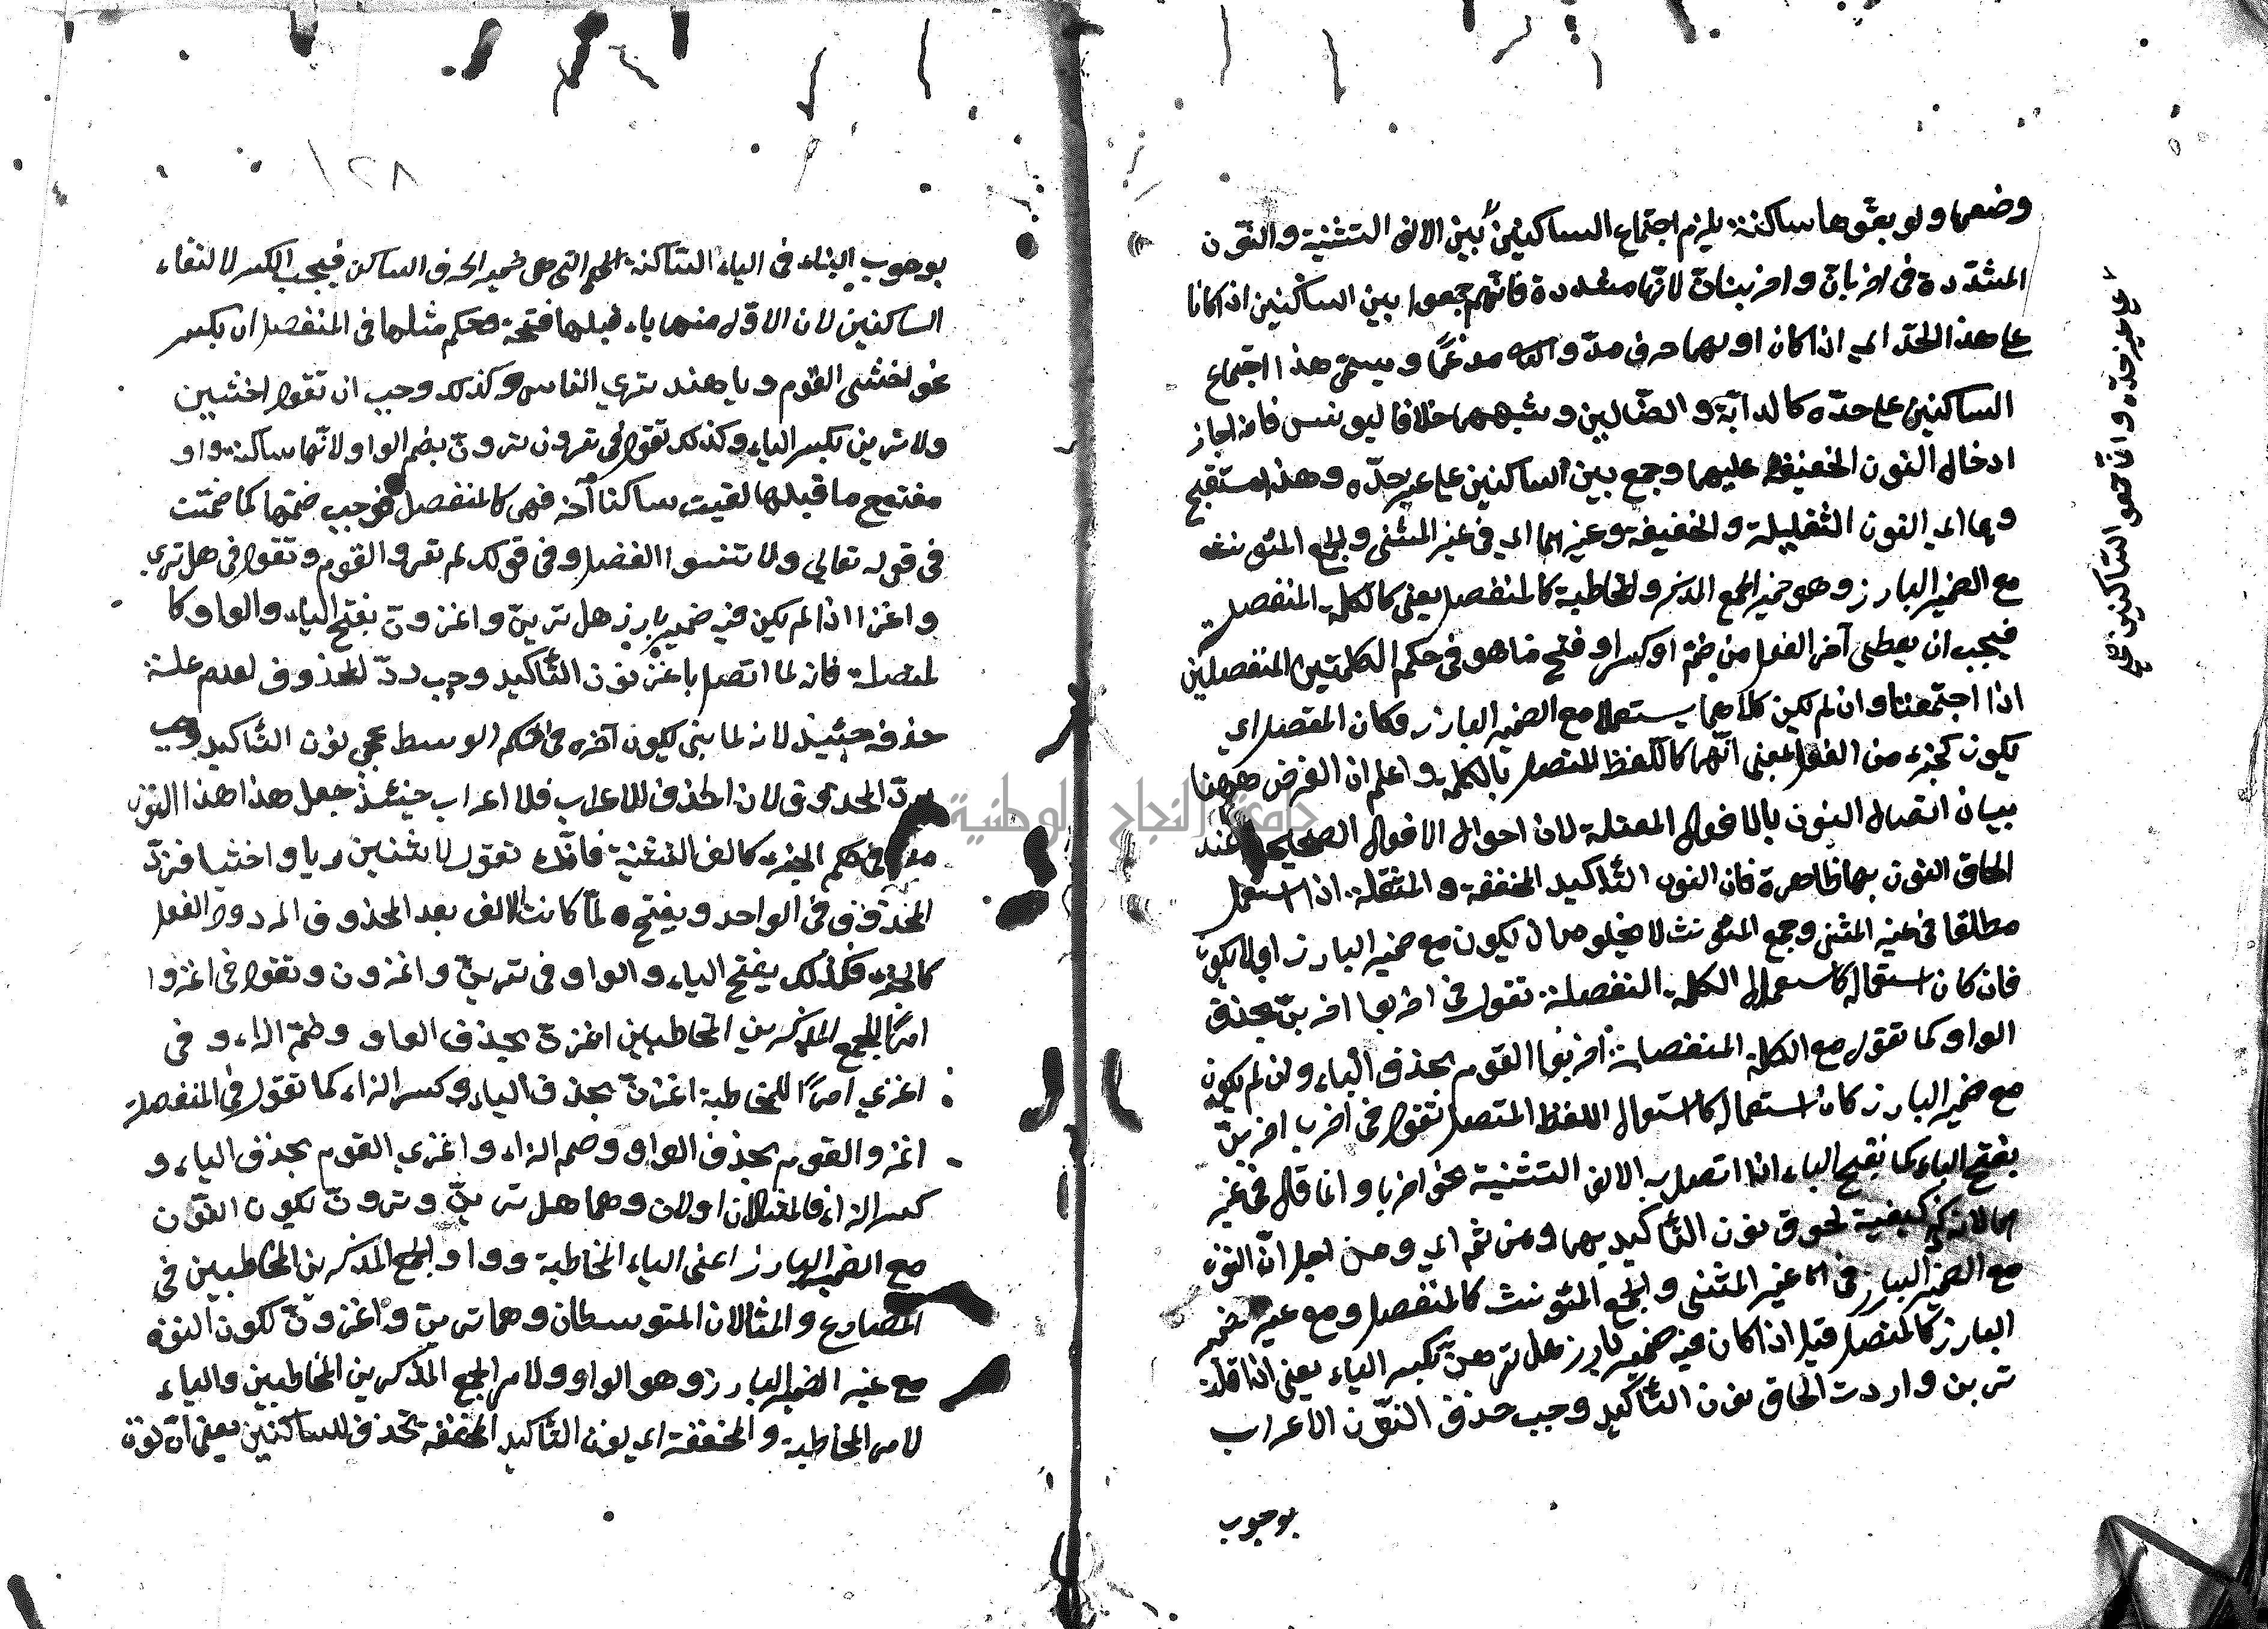 وضعها ولو بقوها ساكنة يلزم اجتماع الساكنين بين الالف التثنية والنون
المشددة في اضربان واضربنان لانها مشددة فانهم جمعوا بين الساكنين اذا كانا
على هذا الحد اي اذا كان اولهما حرف مد والثاني مدغما ويسمى هذا اجتماع
الساكنين على حده كالدابة والضالين وشبههما خلافا ليونس فانه اجاز
ادخال النون الخفيفة عليهما وجمع بين الساكنين على غير حده وهذا مستقبح
وهما اي النون الثقيلة والخفيفة وغيرهما اي في غير المثنى والجمع المئونث
مع الضمير البارز وهو ضمير الجمع المذكر والمخاطبة كالمنفصل يعني كالكلمة المنفصلة
فيجب ان يعطى آخر الفعل من ضم او كسر او فتح ما هو في حكم الكلمتين المنفصلتين
اذا اجتمعتا وان لم يكن كلاهما يستعملا مع الضمير البارز فكان المتصل اي
يكون كجزء من الفعل بمعنى انهما كاللفظ المتصل بالكلمة واعلم ان الغرض ههنا
بيان اتصال النون بالافعال المعتلة لان احوال الافعال الصحيحة عند
الحاق النون بها ظاهرة فان النون التأكيد المخففة والمثقلة اذا استعمل
مطلقا في غير المثنى وجمع المئونث لا يخلو اما ان يكون مع ضمير البارز او لا يكون
فان كان استعماله كاستعمال الكلمة المنفصلة تقول في اضربوا اضربن بحذف
الواو كما تقول مع الكلمة المنفصلة اضربوا القوم بحذف الياء وان لم يكون
مع ضمير البارز كان استعماله كاستعمال اللفظ المتصل تقول في اضرب اضربن
بفتح الباء كما يفتح الباء اذا اتصل به الالف التثنية نحو اضربا وانما قال في غير
هما لانه ذكر كيفية لحوق نون التأكيد بهما ومن ثم اي ومن اجل ان النون
مع الضمير البارز في غير المثنى والجمع المئونث كالمنفصل ومع غير ضمير
البارز كالمتصل قيل اذا كان فيه ضمير بارز هل ترين بكسر الياء يعني اذا قلت
ترين واردت الحاق نون التأكيد وجب حذف النون الاعراب
بوجوب
على غير حده وانما جمعوا الساكنين
١٢٨
بوجوب البناء في الياء الساكنة التي هي ضمير الحرف الساكن فيجب الكسر لالتقاء
الساكنين لان الاول منهما ياء قبلها فتحة وحكم مثلها في المنفصل ان يكسر
نحو اخشى القوم ويا هند تري الناس وكذلك وجب ان تقول اخشين
ولا ترين بكسر الياء وكذلك تقول في ترون ترون بضم الواو لانها ساكنة واو
مفتوح ما قبلها لقيت ساكنا آخر فهي كالمنفصل فوجب ضمها كما ضمت
في قوله تعالى ولا تنسوا الفضل وفي قولك لم تروا القوم وتقول في هل ترى
واغزا اذا لم يكن فيه ضمير بارز هل ترين واغزون بفتح الياء والواو كا
لمتصلة فانه لما اتصل باغز نون التأكيد وجب رد المحذوف لعدم علة
حذفه حينئذ لانه لما بنى يكون آخره في الحكم الوسط نحو نون التأكيد وجب
رد المحذوف لان الحذف للاعراب فلا اعراب حينئذ جعل هذا هذا النون
في حكم الجزء كالف التثنية فانك تقول لاثنين ريا واخشيا فترد
المحذوف في الواحد ويفتح لما كانت الالف بعد المحذوف المردود الفعل
كالجزء فكذلك يفتح الياء والواو في ترين واغزون وتقول في اغزوا
امرا للجمع المذكرين المخاطبين اغزن بحذف الواو وضم الزاء وفي
اغزي امرا للمخاطبة اغزن بحذف الياء وكسر الزاء كما تقول في المنفصلة
اغزوا القوم بحذف الواو وضم الزاء واغزي القوم بحذف الياء و
كسر الزاء فالمثالان اولان وهما هل ترين وترون لكون النون
مع الضمير البارز اعني الياء المخاطبة وواو الجمع المذكرين المخاطبين في
المضارع والمثالان المتوسطان وهما ترين واغزون لكون النون
مع غير الضمير البارز وهو الواو ولامر الجمع المذكرين المخاطبين والياء
لامر المخاطبة والمخففة اي نون التأكيد المخففة تحذف للساكنين يعني ان نون